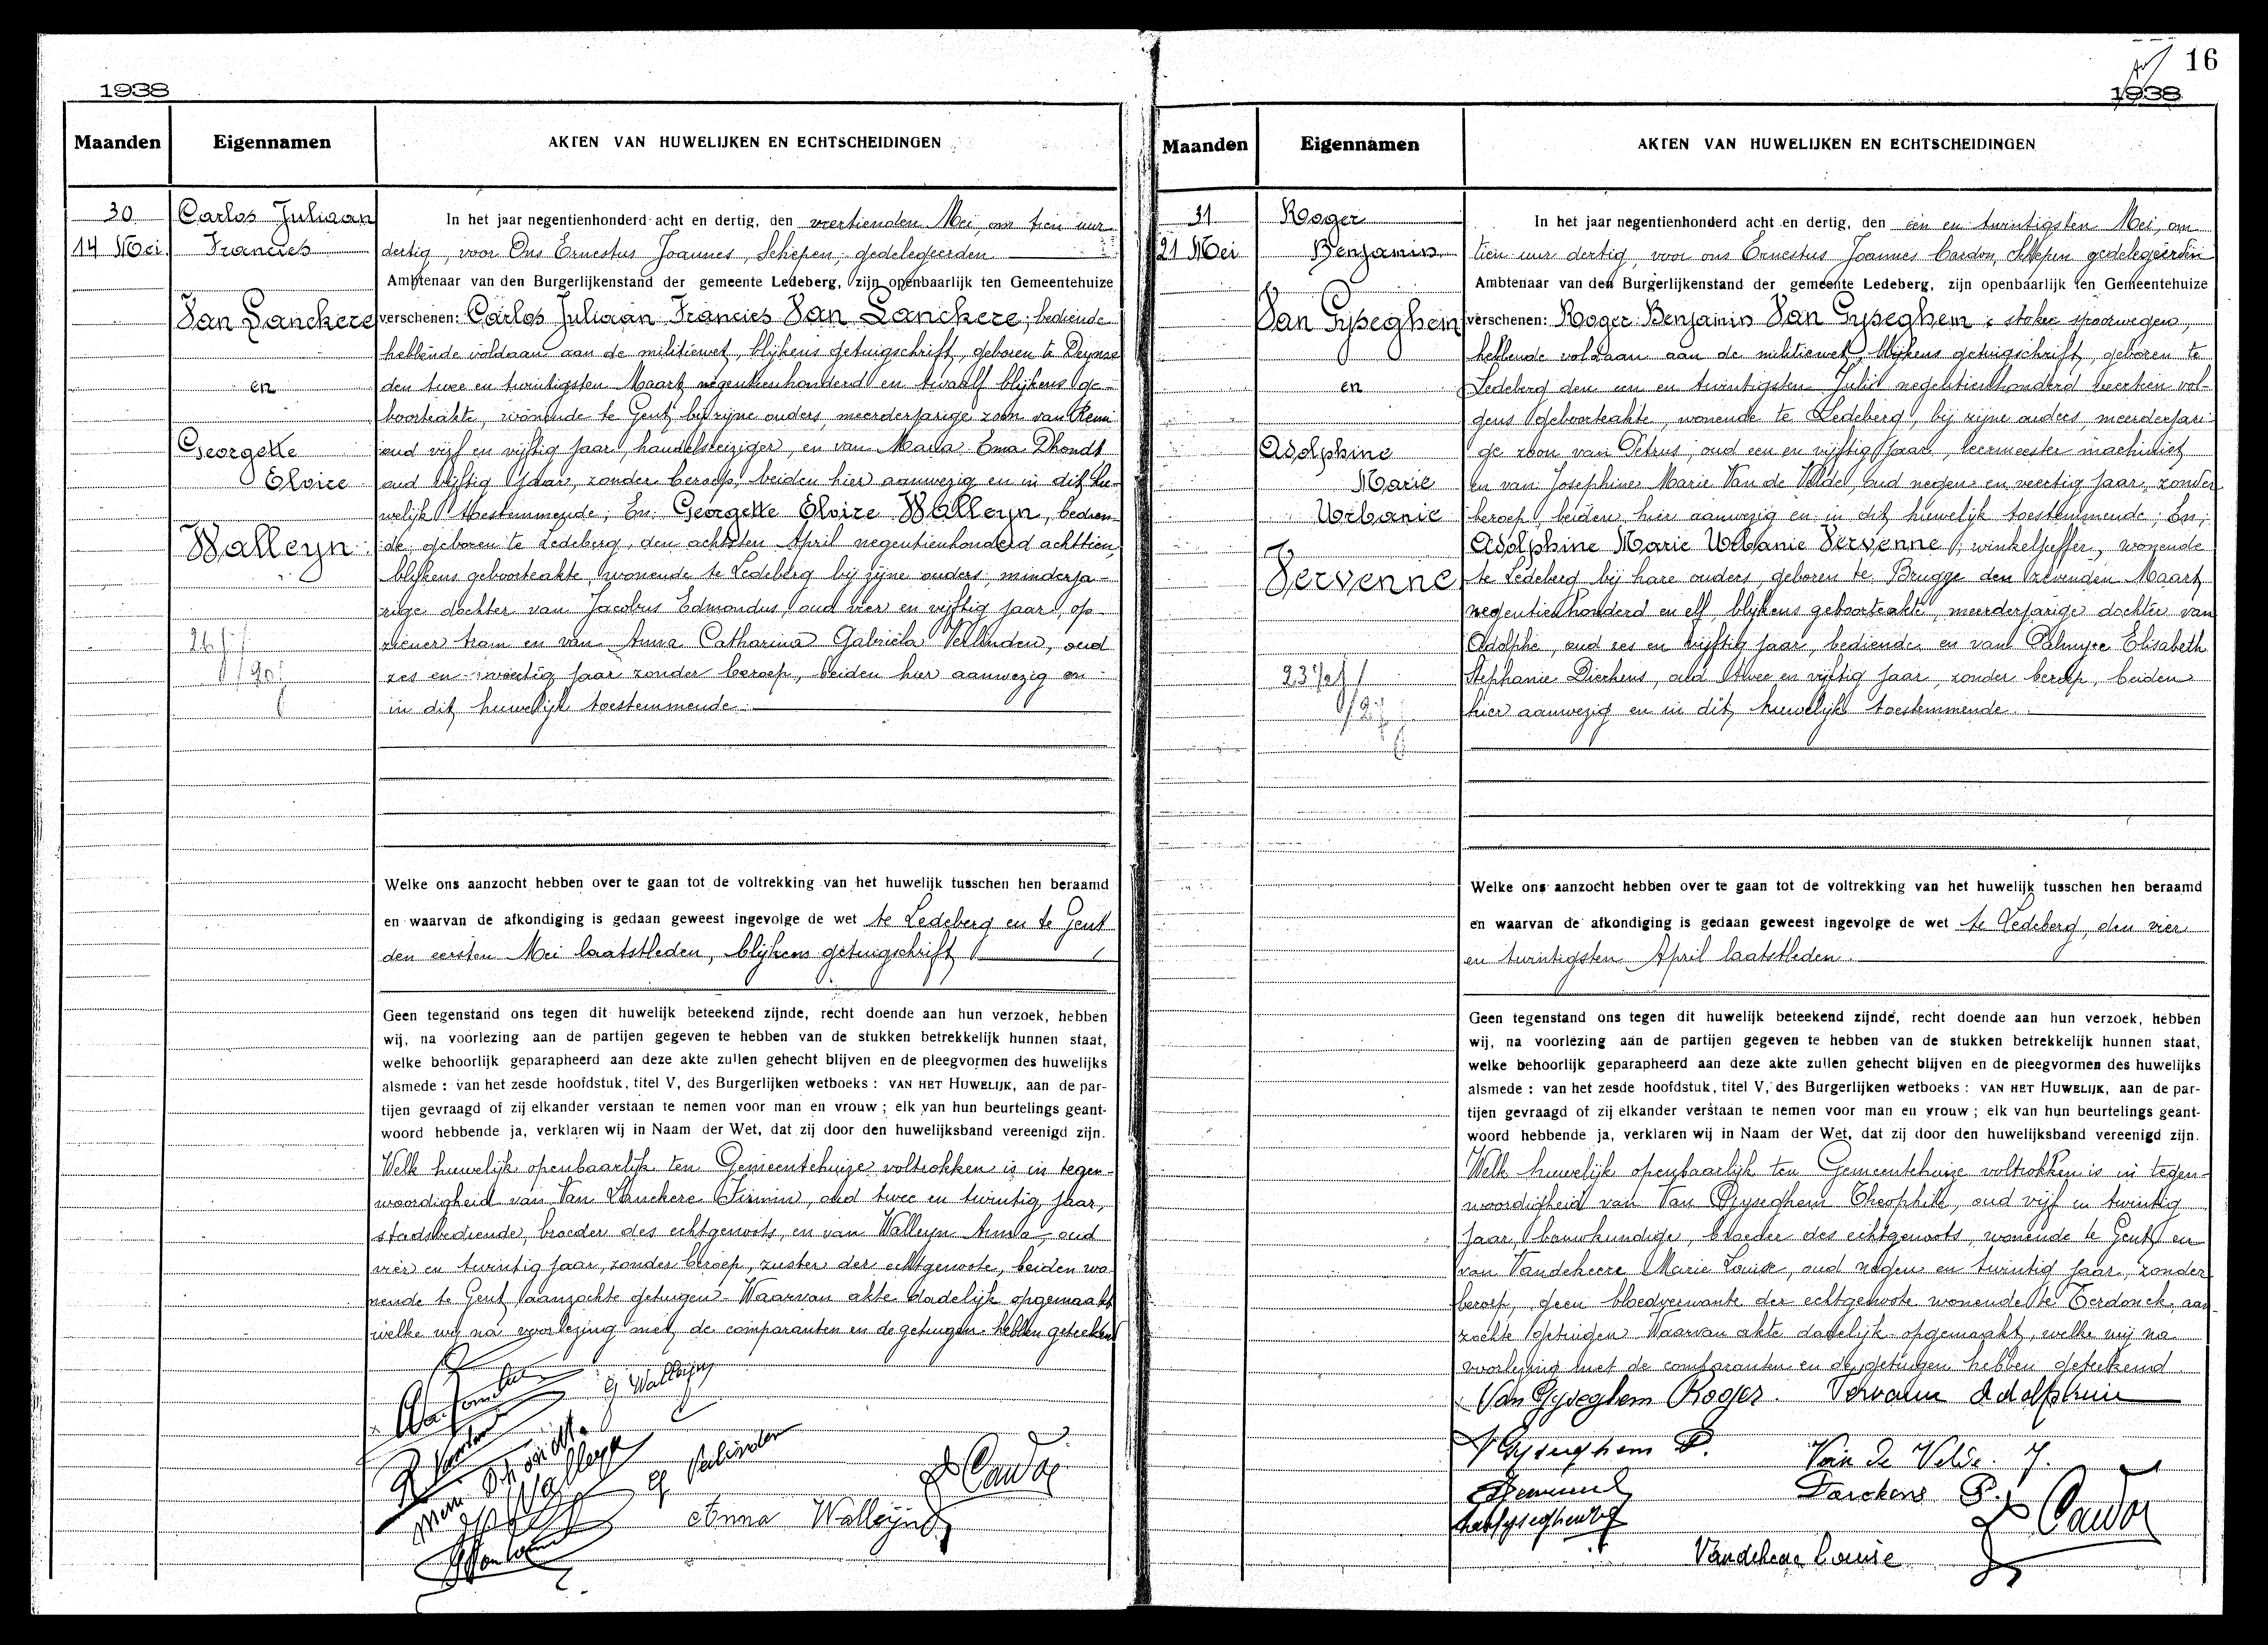 1938
Maanden
Eigennamen
AKTEN VAN HUWELIJKEN EN ECHTSCHEIDINGEN
30
14 Mei
Carlos Juliaan
Francies
Van Lanckere
en
Georgette
Eloize
Walleyn
In het jaar negentienhonderd acht en dertig, den veertienden Mei, om tien uur
dertig, voor Ons Ernestus Joannes, Schepen, gedelegeerden
Ambtenaar van den Burgerlijkenstand der gemeente Ledeberg, zijn openbaarlijk ten Gemeentehuize
verschenen: Carlos Juliaan Francies Van Lanckere, bediende
hebbende voldaan aan de militiewet, blijkens getuigschrift, geboren te Deynse
den twee en twintigsten Maart negentienhonderd en twaalf blijkens ge-
boorteakte, wonende te Gent bij zijne ouders, meerderjarige zoon van Remi
oud vijf en vijftig jaar, handelsreiziger, en van Maria Ema Dhondt
oud vijftig jaar, zonder beroep, beiden hier aanwezig en in dit hu-
welijk toestemmende; En: Georgette Eloize Walleyn, bedien-
de, geboren te Ledeberg, den achtsten April negentienhonderd achttien
blijkens geboorteakte, wonende te Ledeberg bij zijne ouders, minderja-
rige dochter van Jacobus Edmondus, oud vier en vijftig jaar, op-
ziener tram en van Anna Catharina Gabriela Verlinden, oud
zes en veertig jaar zonder beroep, beiden hier aanwezig en
in dit huwelijk toestemmende.
Welke ons aanzocht hebben over te gaan tot de voltrekking van het huwelijk tusschen hen beraamd
en waarvan de afkondiging is gedaan geweest ingevolge de wet te Ledeberg en te Gent
den eersten Mei laatstleden, blijkens getuigschrift
Geen tegenstand ons tegen dit huwelijk beteekend zijnde, recht doende aan hun verzoek, hebben
wij, na voorlezing aan de partijen gegeven te hebben van de stukken betrekkelijk hunnen staat,
welke behoorlijk geparapheerd aan deze akte zullen gehecht blijven en de pleegvormen des huwelijks
alsmede : van het zesde hoofdstuk, titel V, des Burgerlijken wetboeks : VAN HET HUWELIJK, aan de par-
tijen gevraagd of zij elkander verstaan te nemen voor man en vrouw ; elk van hun beurtelings geant-
woord hebbende ja, verklaren wij in Naam der Wet, dat zij door den huwelijksband vereenigd zijn.
Welk huwelijk openbaarlijk ten Gemeentehuize voltrokken is in tegen-
woordigheid van Van Lanckere Firmin, oud twee en twintig jaar,
stadsbediende, broeder des echtgenoots, en van Walleyn Anna, oud
vier en twintig jaar, zonder beroep, zuster der echtgenoote, beiden wo-
nende te Gent aanzochte getuigen. Waarvan akte dadelijk opgemaakt
welke wij na voorlezing met de comparanten en de getuigen hebben geteekend
G Walleyn
G Verlinden
Anna Walleyn
16
1938
Maanden
Eigennamen
AKTEN VAN HUWELIJKEN EN ECHTSCHEIDINGEN
31
21 Mei
Roger
Benjamin
Van Gyseghem
en
Adolphine
Marie
Urbanie
Vervenne
In het jaar negentienhonderd acht en dertig, den een en twintigsten Mei, om
tien uur dertig, voor ons Ernestus Joannes Cardon, Schepen gedelegeerden
Ambtenaar van den Burgerlijkenstand der gemeente Ledeberg, zijn openbaarlijk ten Gemeentehuize
verschenen: Roger Benjamin Van Gyseghem, stoker spoorwegen,
hebbende voldaan aan de militiewet, blijkens getuigschrift, geboren te
Ledeberg den een en twintigsten Juli negentienhonderd veertien vol-
gens geboorteakte, wonende te Ledeberg, bij zijne ouders, meerderjari-
ge zoon van Petrus, oud een en vijftig jaar, leermeester machinist
en van Josephine Marie Van de Velde, oud negen en veertig jaar, zonder
beroep, beiden hier aanwezig en in dit huwelijk toestemmende; En;
Adolphine Marie Urbanie Vervenne, winkeljuffer, wonende
te Ledeberg bij hare ouders, geboren te Brugge den zevenden Maart
negentienhonderd en elf, blijkens geboorteakte, meerderjarige dochter van
Adolphe, oud zes en vijftig jaar, bediende en van Palmyre Elisabeth
Stephanie Dierkens, oud twee en vijftig jaar, zonder beroep, beiden
hier aanwezig en in dit huwelijk toestemmende.
Welke ons aanzocht hebben over te gaan tot de voltrekking van het huwelijk tusschen hen beraamd
en waarvan de afkondiging is gedaan geweest ingevolge de wet te Ledeberg, den vier
en twintigsten April laatstleden.
Geen tegenstand ons tegen dit huwelijk beteekend zijnde, recht doende aan hun verzoek, hebben
wij, na voorlezing aan de partijen gegeven te hebben van de stukken betrekkelijk hunnen staat,
welke behoorlijk geparapheerd aan deze akte zullen gehecht blijven en de pleegvormen des huwelijks
alsmede : van het zesde hoofdstuk, titel V, des Burgerlijken wetboeks : VAN HET HUWELIJK, aan de par-
tijen gevraagd of zij elkander verstaan te nemen voor man en vrouw ; elk van hun beurtelings geant-
woord hebbende ja, verklaren wij in Naam der Wet, dat zij door den huwelijksband vereenigd zijn.
Welk huwelijk openbaarlijk ten Gemeentehuize voltrokken is in tegen-
woordigheid van Van Gyseghem Theophile, oud vijf en twintig
jaar, bouwkundige, broeder des echtgenoots, wonende te Gent en
van Vandeheere Marie Louise, oud negen en twintig jaar, zonder
beroep, geen bloedverwante der echtgenoote wonende te Terdonck, aan-
zochte getuigen. Waarvan akte dadelijk opgemaakt, welke wij na
voorlezing met de comparanten en de getuigen hebben geteekend.
Van Gyseghem Roger. Vervenne Adolphine
V Gyseghem P. Van de Velde J.
Dierkens P.
Vandeheere Louise